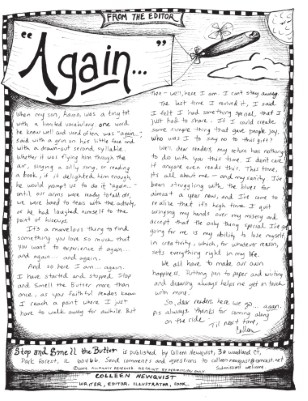 FROM THE EDITOR
"Again..."
When my son, Aaron, was a tiny tot
with a limited vocabulary, one word
he knew well and said often was "again."
Said with a grin on his little face and
with a drawn-out second syllable.
Whether it was flying him through the
air, singing a silly song, or reading
a book, if it delighted him enough,
he would prompt us to do it "again..."
until our arms were ready to fall off,
we were bored to tears with the activity,
or he had laughed himself to the
point of hiccups.
It's a marvelous thing to find
something you love so much that
you want to experience it again...
and again... and again.
And so here I am... again.
I have started and stopped Stop
and Smell the Butter more than
once - as you faithful readers know.
I reach a point where I just
have to walk away for awhile. But
then - well, here I am. I can't stay away.
The last time I revived it, I said
I felt I had something special, that I
just had to share. If I could create
some simple thing that gave people joy,
who was I to say no to this gift?
Well, dear readers, my return has nothing
to do with you this time. I don't care
if anyone even reads this. This time,
it's all about me - and my sanity. I've
been struggling with the blues for
almost a year now, and I've come to
realize that it's high time I quit
wringing my hands over my misery and
accept that the only thing special I've
going for me is my ability to lose myself
in creativity, which, for whatever reason,
sets everything right in my life.
We all have to make our own
happiness. Putting pen to paper and writing
and drawing always helps me get in touch
with mine.
So, dear readers, here we go... again.
As always, thanks for coming along
on the ride.
'Til next time,
Colleen
Stop and Smell the Butter is published by Colleen Newquist, 30 Woodland Ct,
Park Forest, IL 60466. Send comments and questions to colleennewquist@comcast.net
Submissions welcome.
COLLEEN NEWQUIST
WRITER, EDITOR, ILLUSTRATOR, COOK